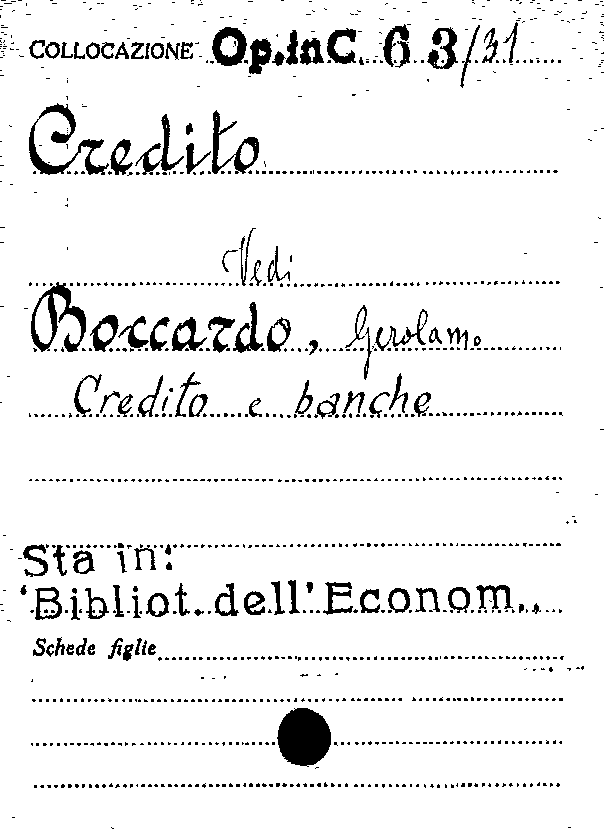 COLLOCAZIONE Op.inC. 63/31
Credito
Vedi
Boccardo, Gerolamo
Credito e banche
Sta in:
'Bibliot. dell' Econom.,
Schede figlie